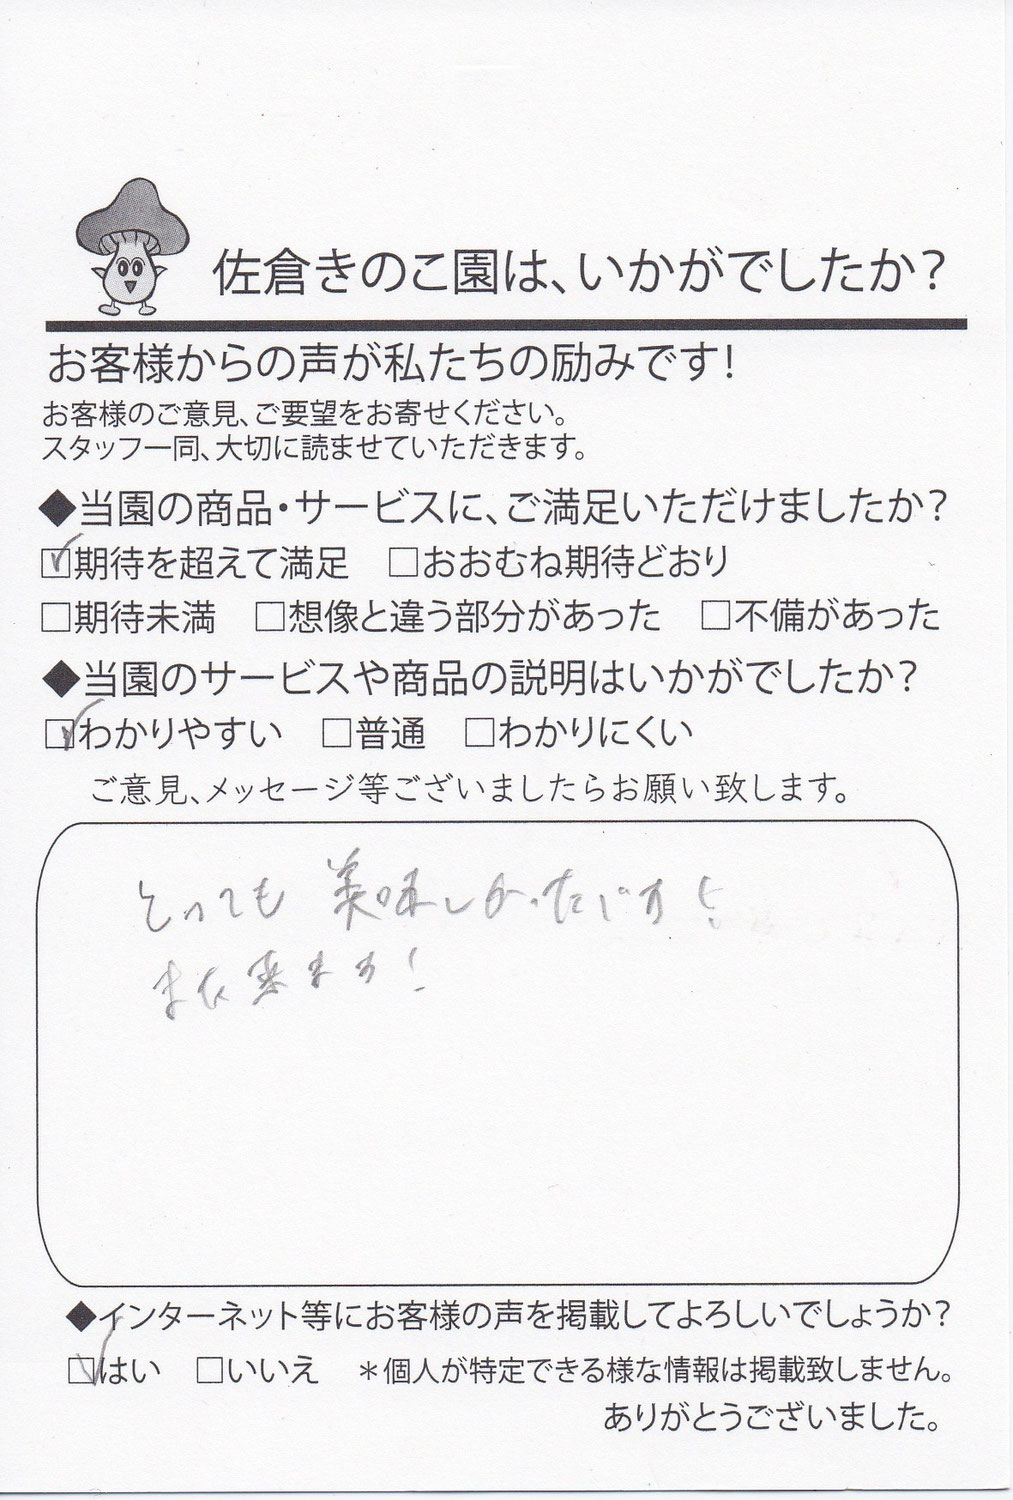 佐倉きのこ園は、いかがでしたか？
お客様からの声が私たちの励みです！
お客様のご意見、ご要望をお寄せください。
スタッフ一同、大切に読ませていただきます。
◆当園の商品・サービスに、ご満足いただけましたか？
☑期待を超えて満足 □おおむね期待どおり
□期待未満 □想像と違う部分があった □不備があった
◆当園のサービスや商品の説明はいかがでしたか？
☑わかりやすい □普通 □わかりにくい
ご意見、メッセージ等ございましたらお願い致します。
とっても美味しかったです！
また来ます！
◆インターネット等にお客様の声を掲載してよろしいでしょうか？
☑はい □いいえ ＊個人が特定できる様な情報は掲載致しません。
ありがとうございました。